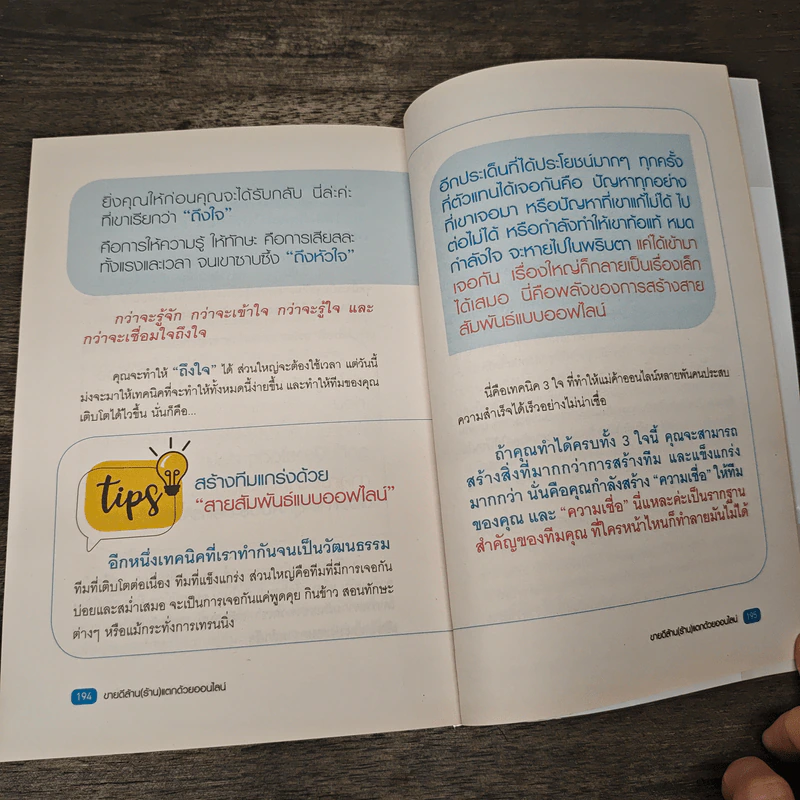 ยิ่งคุณให้ก่อนคุณจะได้รับกลับ นี่ล่ะค่ะ
ที่เขาเรียกว่า “ถึงใจ”
คือการให้ความรู้ ให้ทักษะ คือการเสียสละ
ทั้งแรงและเวลา จนเขาซาบซึ้ง “ถึงหัวใจ”
กว่าจะรู้จัก กว่าจะเข้าใจ กว่าจะรู้ใจ และ
กว่าจะเชื่อมใจถึงใจ
คุณจะทำให้ “ถึงใจ” ได้ ส่วนใหญ่จะต้องใช้เวลา แต่วันนี้
ม่งจะมาให้เทคนิคที่จะทำให้ทั้งหมดนี้ง่ายขึ้น และทำให้ทีมของคุณ
เติบโตได้ไวขึ้น นั่นก็คือ...
tips
สร้างทีมแกร่งด้วย
“สายสัมพันธ์แบบออฟไลน์”
อีกหนึ่งเทคนิคที่เราทำกันจนเป็นวัฒนธรรม
ทีมที่เติบโตต่อเนื่อง ทีมที่แข็งแกร่ง ส่วนใหญ่คือทีมที่มีการเจอกัน
บ่อยและสม่ำเสมอ จะเป็นการเจอกันแค่พูดคุย กินข้าว สอนทักษะ
ต่างๆ หรือแม้กระทั่งการเทรนนิ่ง
194 ขายดีล้าน(ร้าน)แตกด้วยออนไลน์
อีกประเด็นที่ได้ประโยชน์มากๆ ทุกครั้ง
ที่ตัวแทนได้เจอกันคือ ปัญหาทุกอย่าง
ที่เขาเจอมา หรือปัญหาที่เขาแก้ไม่ได้ ไป
ต่อไม่ได้ หรือกำลังทำให้เขาท้อแท้ หมด
กำลังใจ จะหายไปในพริบตา แค่ได้เข้ามา
เจอกัน เรื่องใหญ่ก็กลายเป็นเรื่องเล็ก
ได้เสมอ นี่คือพลังของการสร้างสาย
สัมพันธ์แบบออฟไลน์
นี่คือเทคนิค 3 ใจ ที่ทำให้แม่ค้าออนไลน์หลายพันคนประสบ
ความสำเร็จได้เร็วอย่างไม่น่าเชื่อ
ถ้าคุณทำได้ครบทั้ง 3 ใจนี้ คุณจะสามารถ
สร้างสิ่งที่มากกว่าการสร้างทีม และแข็งแกร่ง
มากกว่า นั่นคือคุณกำลังสร้าง “ความเชื่อ” ให้ทีม
ของคุณ และ “ความเชื่อ” นี่แหละค่ะเป็นรากฐาน
สำคัญของทีมคุณ ที่ใครหน้าไหนก็ทำลายมันไม่ได้
ขายดีล้าน(ร้าน)แตกด้วยออนไลน์ 195